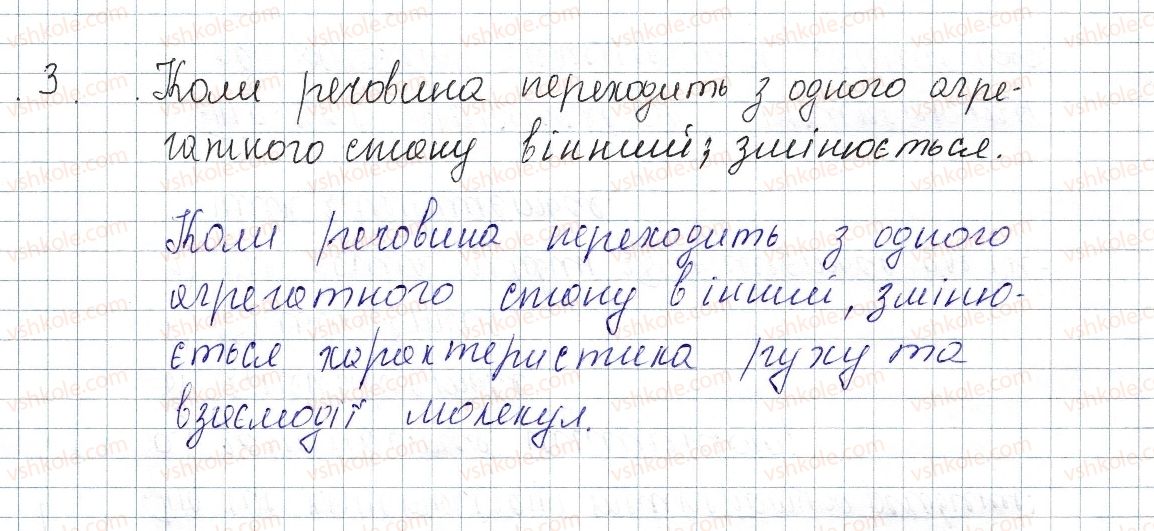 3. Коли речовина переходить з одного агре-
гатного стану в інший, змінюється.
Коли речовина переходить з одного
агрегатного стану в інший, зміню-
ється характеристика руху та
взаємодії молекул.